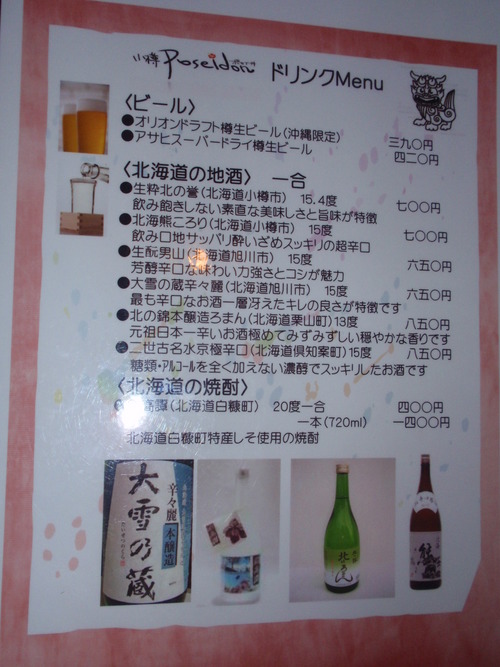 小樽 Poseidon ドリンクMenu
〈ビール〉
●オリオンドラフト樽生ビール(沖縄限定) 三九〇円
●アサヒスーパードライ樽生ビール 四二〇円
〈北海道の地酒〉 一合
●生粋北の誉(北海道小樽市) 15.4度
飲み飽きしない素直な美味しさと旨味が特徴 七〇〇円
●北海熊ころり(北海道小樽市) 15度
飲み口地サッパリ酔いざめスッキリの超辛口 七〇〇円
●生酛男山(北海道旭川市) 15度
芳醇辛口な味わい力強さとコシが魅力 六五〇円
●大雪の蔵辛々麗(北海道旭川市) 15度 六五〇円
最も辛口なお酒一層冴えたキレの良さが特徴です
●北の錦本醸造ろまん(北海道栗山町)13度 八五〇円
元祖日本一辛いお酒極めてみずみずしい穏やかな香りです
●二世古名水京極辛口(北海道倶知案町)15度 八五〇円
糖類・アルコールを全く加えない濃醇でスッキリしたお酒です
〈北海道の焼酎〉
譚(北海道白糠町) 20度一合 四〇〇円
一本(720ml) 一四〇〇円
北海道白糠町特産しそ使用の焼酎
大雪乃蔵
辛々麗
本醸造